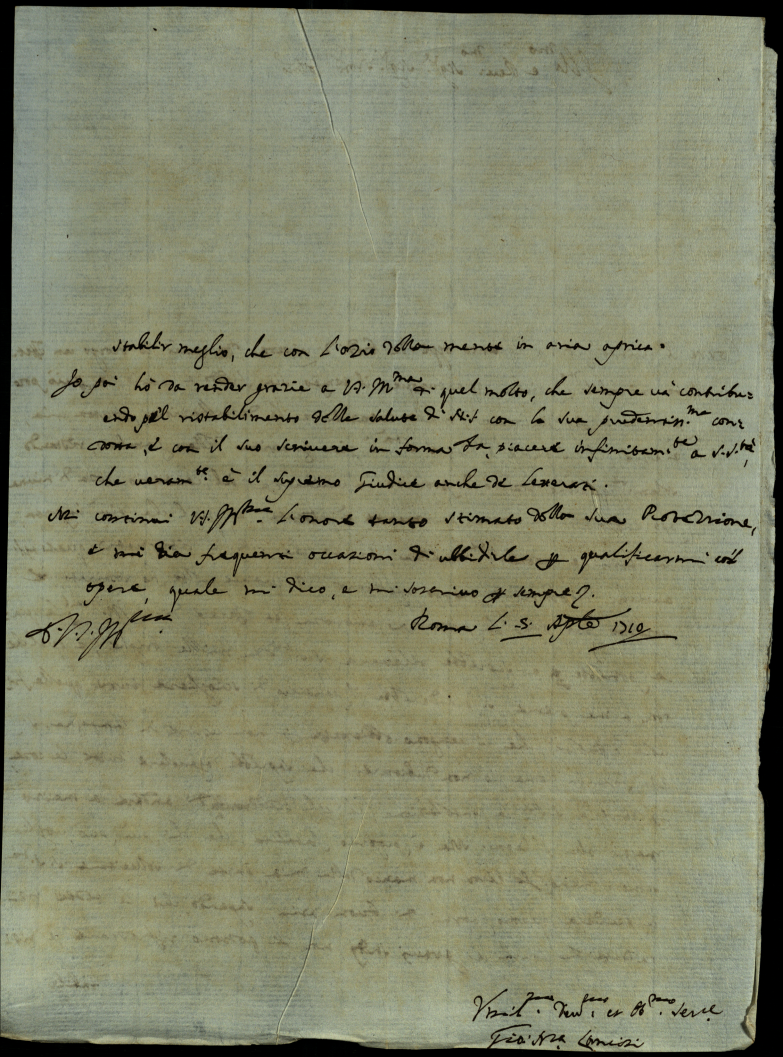 stabilir meglio, che con l'ozio della mente in aria aprica.
Io poi hò da render grazie a V.S. Ill.ma di quel molto, che sempre và contribu-
endo p el ristabilimento della salute di N.S. con la sua prudentiss.ma con-
dotta, e con il suo scrivere in forma da piacere infinitam.te a S.S.tà,
che veram.te è il supremo Giudice anche de Letterati.
Mi continui V.S. Ill.ma l'onore tanto stimato della sua Protezzione,
e mi dia frequenti occasioni di ubbidirle p qualificarmi coll
opere, quale mi dico, e mi soscrivo p sempre
D.V.S. Ill.ma
Roma L. 5. Aple 1710
Umil.mo Dev.mo et Obb.mo Serv.e
Gio: Ma Lancisi